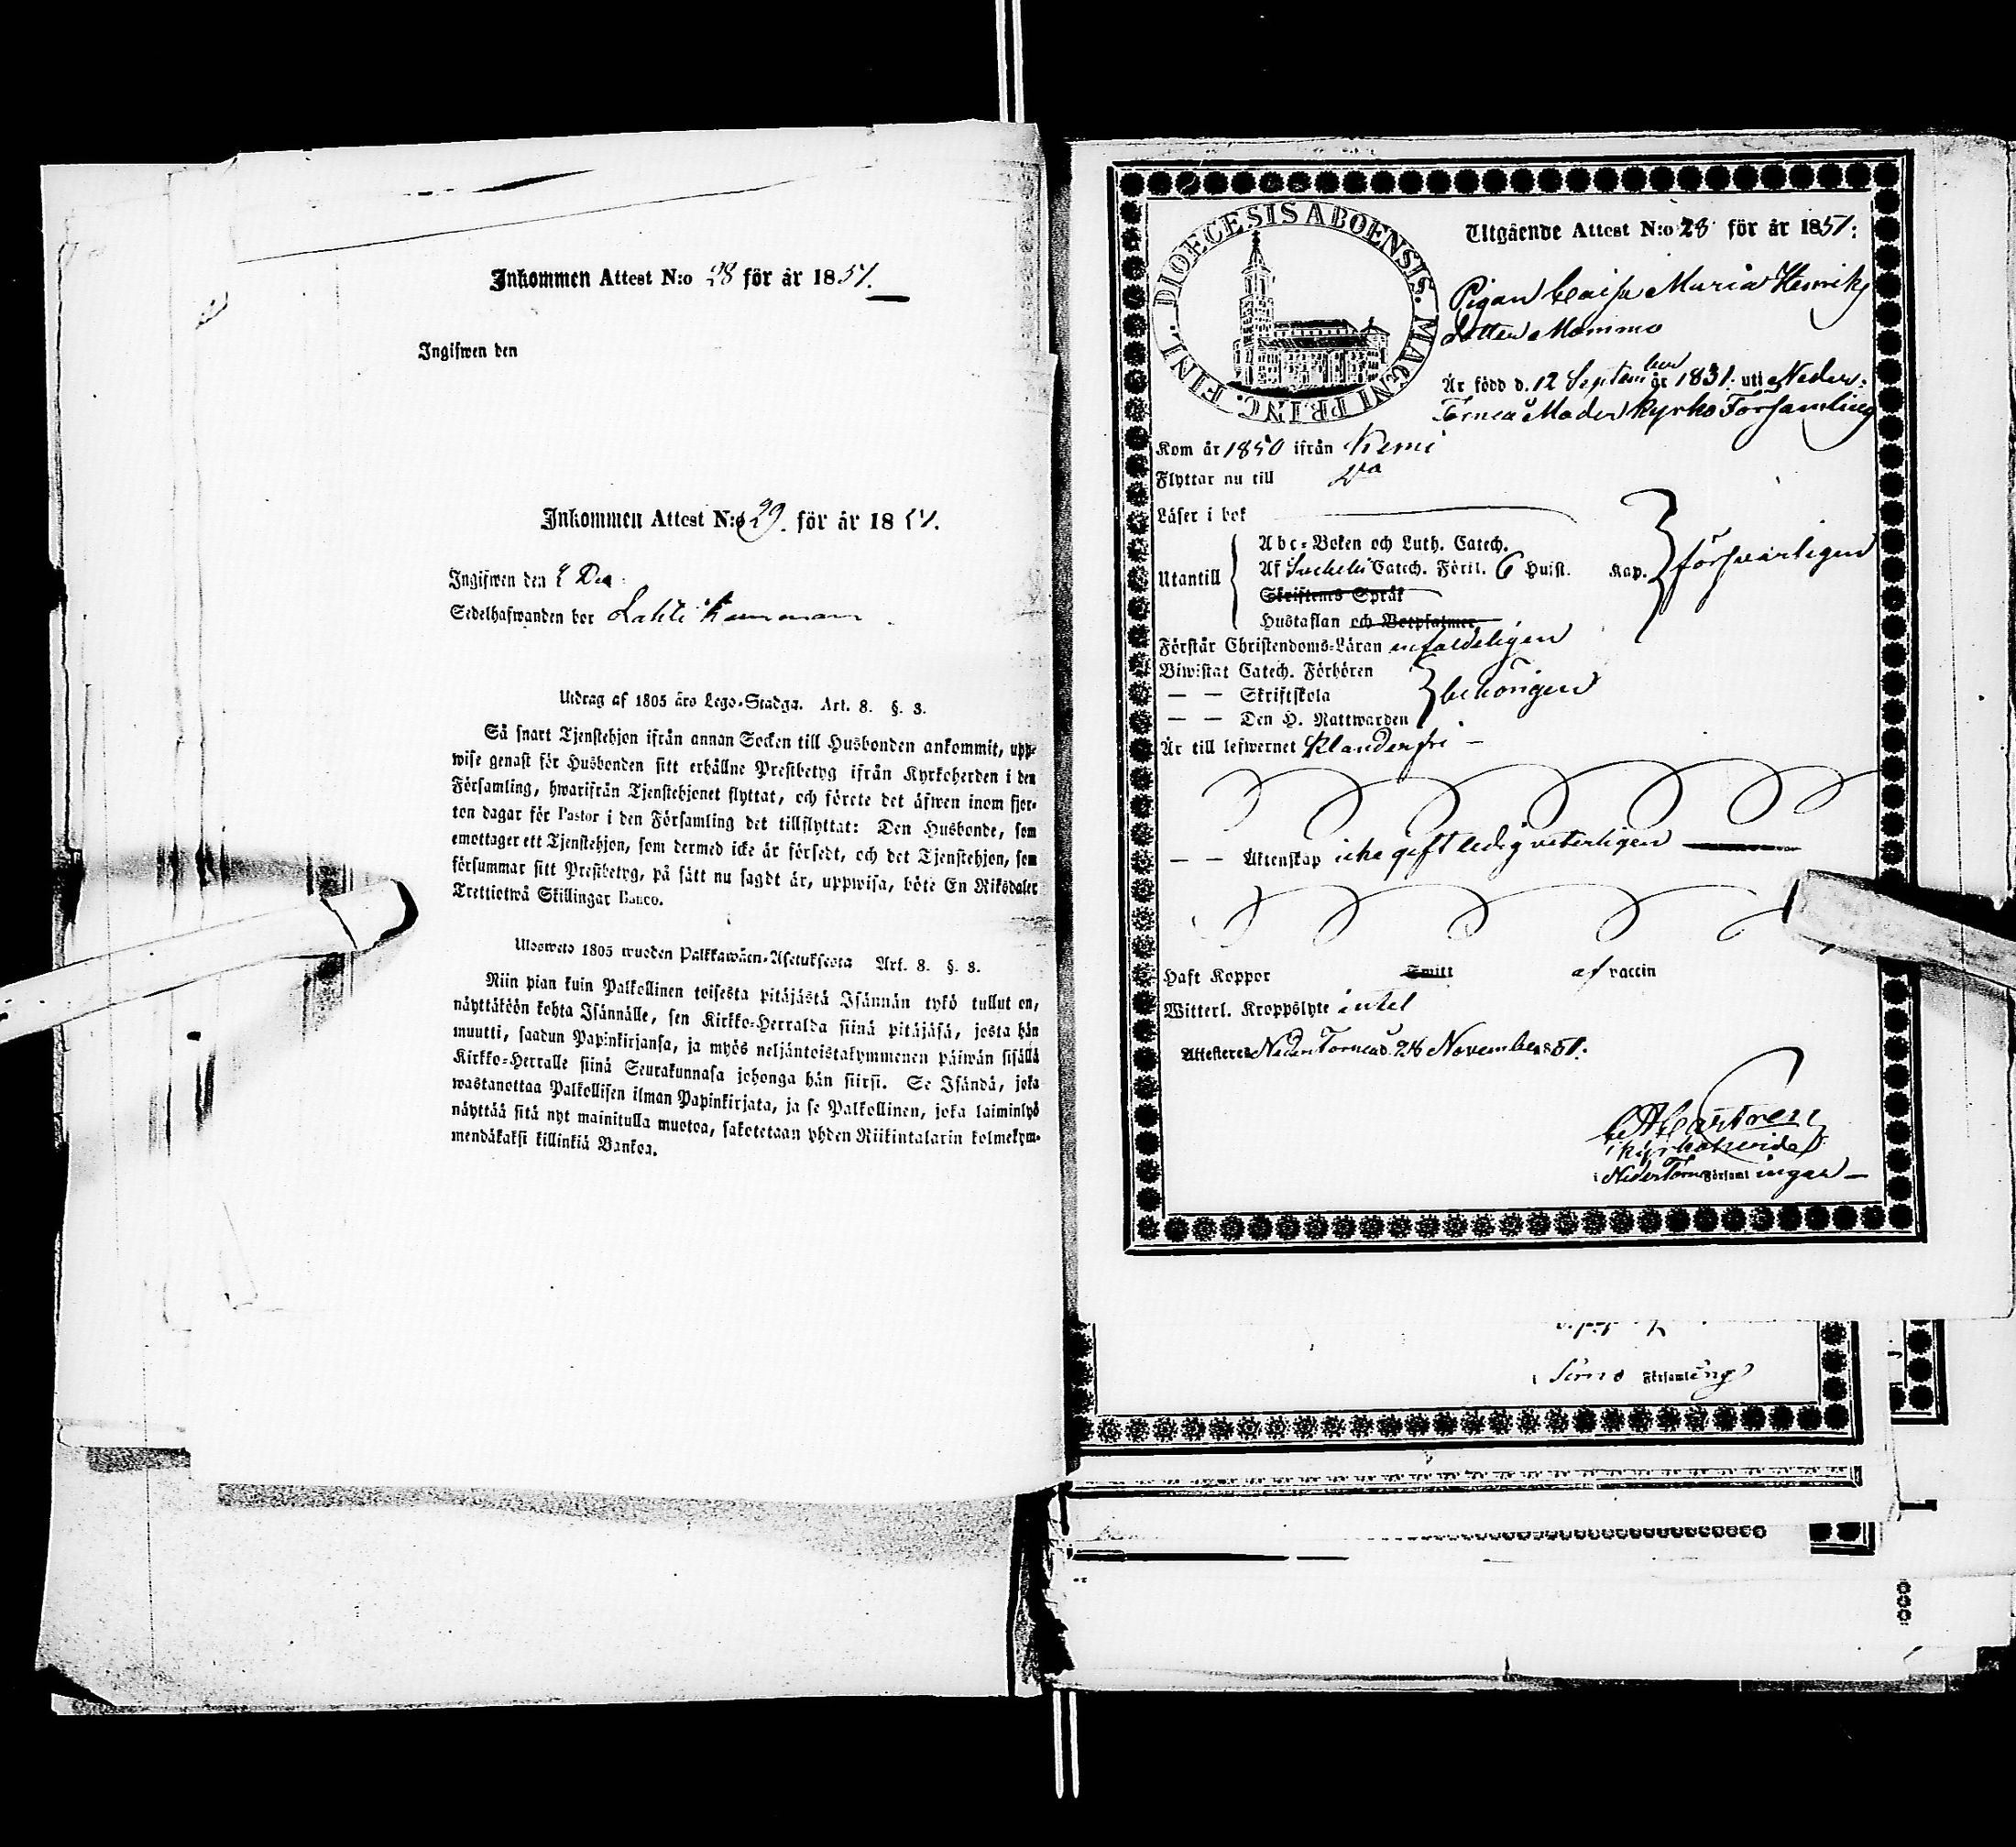 Inkommen Attest N:o 28 för år 1851.
Ingifwen den
Inkommen Attest N:o 29. för år 1851.
Ingifwen den 2 Dec:
Sedelhafwanden bor Lahti
Utdrag af 1805 års Lego-Stadga. Art. 8. §. 3.
Så snart Tjenstehjon ifrån annan Socken till Husbonden ankommit, upp-
wise genast för Husbonden sitt erhållne Prestbetyg ifrån Kyrkoherden i den
Församling, hwarifrån Tjenstehjonet flyttat, och förete det äfwen inom fjor-
ton dagar för Pastor i den Församling det tillflyttat: Den Husbonde, som
emottager ett Tjenstehjon, som dermed icke är försedt, och det Tjenstehjon, som
försummar sitt Prestbetyg, på sätt nu sagdt är, uppwisa, böte En Riksdaler
Trettiotwå Skillingar Banco.
Ulosweto 1805 wuoden Palkkawäen-Asetuksesta Art. 8. §. 3.
Niin pian kuin Palkollinen toisesta pitäjästä Isännän tykö tullut on,
näyttäköön kohta Isännälle, sen Kirkko-Herralda siinä pitäjäsä, josta hän
muutti, saadun Papinkirjansa, ja myös neljäntoistakymmenen päiwän sisällä
Kirkko-Herralle siinä Seurakunnasa johonga hän siirsi. Se Isändä, joka
wastanottaa Palkollisen ilman Papinkirjata, ja se Palkollinen, joka laiminlyö
näyttää sitä nyt mainitulla muotoa, sakotetaan yhden Riikintalarin kolmekym-
mendäkaksi killinkiä Bankoa.
DIOECESIS ABOENSIS. MAGNI PRINC. FINL.
Utgående Attest N:o 28 för år 1851:
Pigan Caisa Maria Henriks
dotter Mommo
Är född d. 12 September år 1831. uti Neder:
Torneå Moder kyrko Församling
Kom år 1850 ifrån Kemi
Flyttar nu till Do
Läser i bok
Utantill
Abc-Boken och Luth. Catech.
Af Catech. Förkl. 6 Huft. Kap. försvarligen
Skriftens Språk
Hustaflan och Botpsalmer
Förstår Christendoms-Läran enfaldeligen
Biwistat Catech. Förhören
— — Skriftskola behörigen
— — Den H. Nattwarden
Är till lefwernet klanderfri —
— — Äktenskap icke gift ledig veterligen
Haft Koppor Smitt af vaccin
Witterl. Kroppslyte intet
Attesteres Neder Torneå d. 28 November 1851.
Castren
Kyrkoherde
i Neder Torneå Församlingar —
Simo Församling